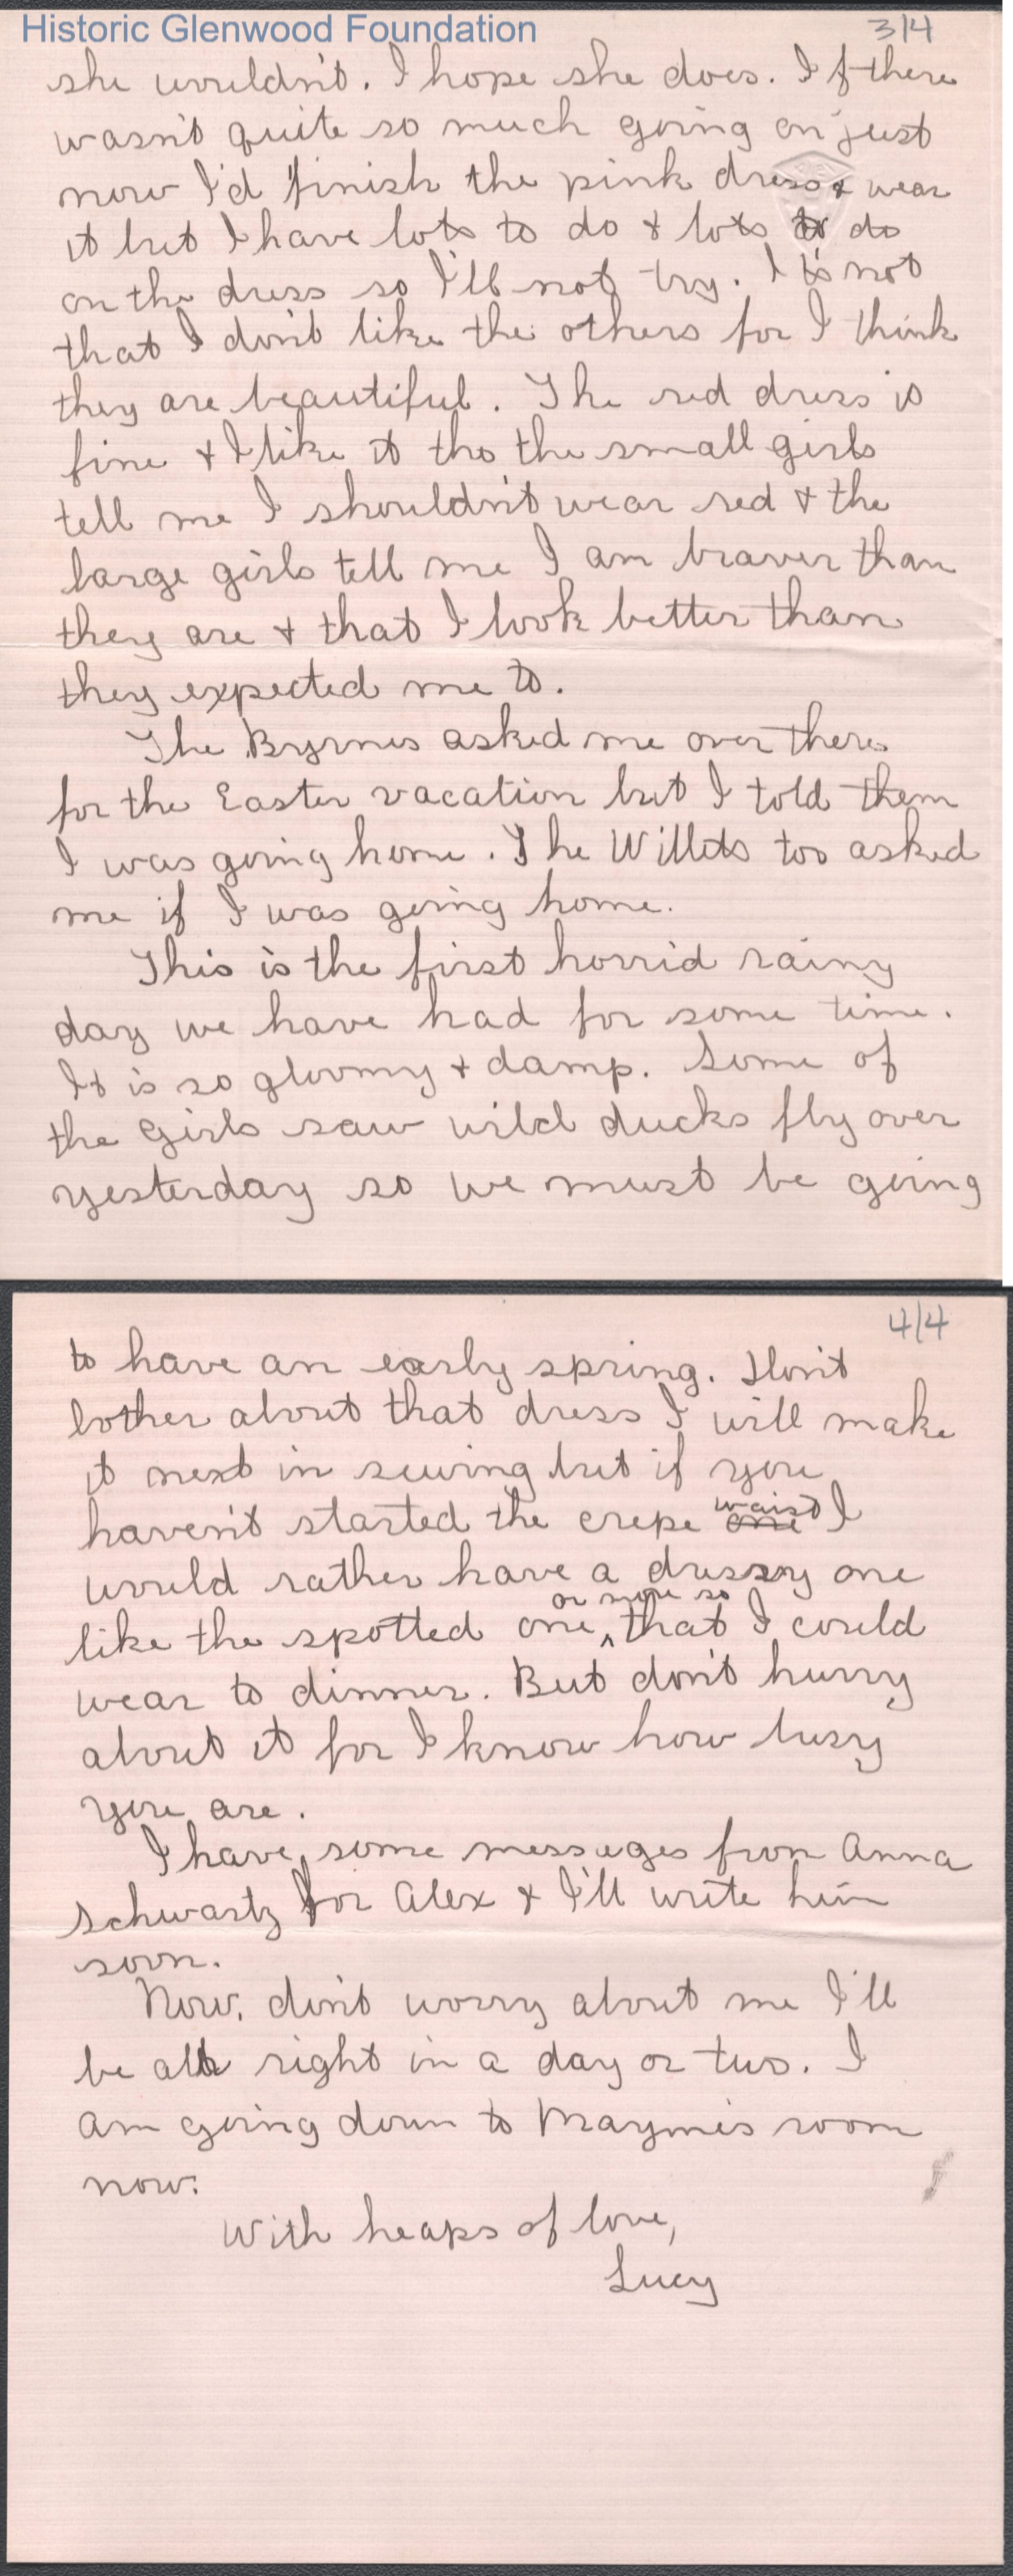 Historic Glenwood Foundation
3/4
she wouldn't. I hope she does. If there
wasn't quite so much going on just
now I'd finish the pink dress & wear
it but I have lots to do & lots to do
on the dress so I'll not try. It's not
that I don't like the others for I think
they are beautiful. The red dress is
fine & I like it tho the small girls
tell me I shouldn't wear red & the
large girls tell me I am braver than
they are & that I look better than
they expected me to.
The Byrnes asked me over there
for the Easter vacation but I told them
I was going home. The Willets too asked
me if I was going home.
This is the first horrid rainy
day we have had for some time.
It is so gloomy & damp. Some of
the girls saw wild ducks fly over
yesterday so we must be going
4/4
to have an early spring. Don't
bother about that dress I will make
it next in sewing but if you
haven't started the crepe one waist I
would rather have a dressy one
like the spotted one, or more so that I could
wear to dinner. But don't hurry
about it for I know how busy
you are.
I have some messages from Anna
Schwartz for Alex & I'll write him
soon.
Now, don't worry about me I'll
be all right in a day or two. I
am going down to Mayme's room
now.
With heaps of love,
Lucy